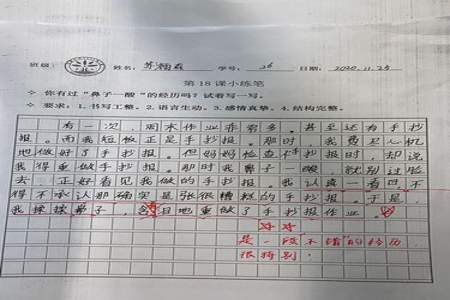 班级: 姓名: 苏 学号: 26 日期: 2020.11.25
第18课小练笔
✧ 你有过“鼻子一酸”的经历吗?试着写一写。
✧ 要求:1.书写工整。2.语言生动。3.感情真挚。4.结构完整。
有一次,周末作业非常多。甚至还有手抄
报。而我短板正是手抄报。那时,我费尽心机
地做好了手抄报。但妈妈检查手抄报时,却说
我得重做手抄报。那时我鼻子一酸,就别过脸
去,正好看见我做的手抄报。我认真一看,不
得不承认那确实是张很糟糕的手抄报。于是,
我揉揉鼻子,含泪地重做了手抄报作业。
是一段不错的经历
很特别.